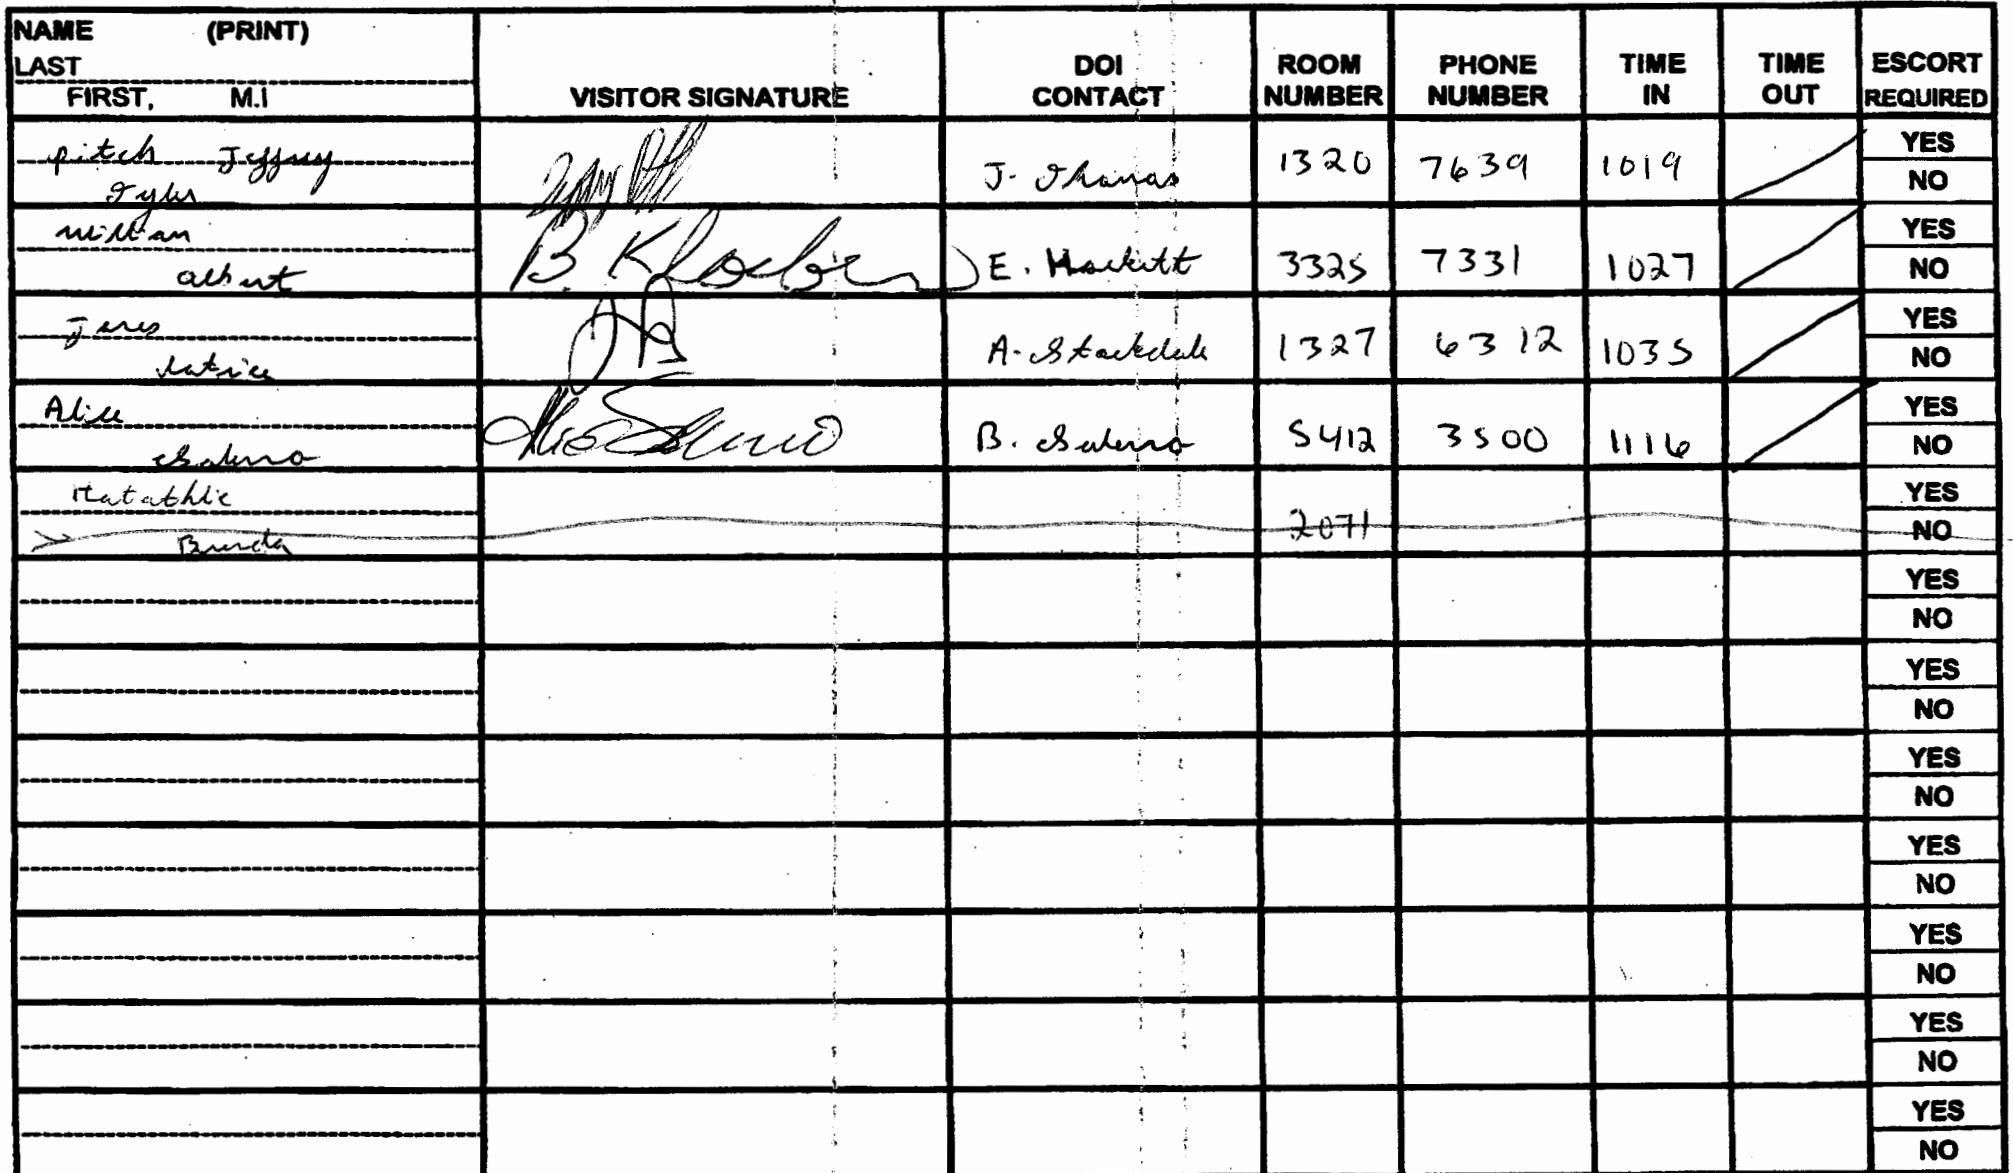 NAME (PRINT)
LAST
FIRST, M.I
VISITOR SIGNATURE
DOI CONTACT
ROOM NUMBER
PHONE NUMBER
TIME IN
TIME OUT
ESCORT REQUIRED
pitch Jeffrey
Tyler
J. Thomas 1320 7639 1019
YES
NO
albert
B.
E. Hackitt 3325 7331 1027
YES
NO
A. Stockdale 1327 6312 1035
YES
NO
Alice
Salerno
B. Salerno 5412 3500 1116
YES
NO
2071
YES
NO
YES
NO
YES
NO
YES
NO
YES
NO
YES
NO
YES
NO
YES
NO